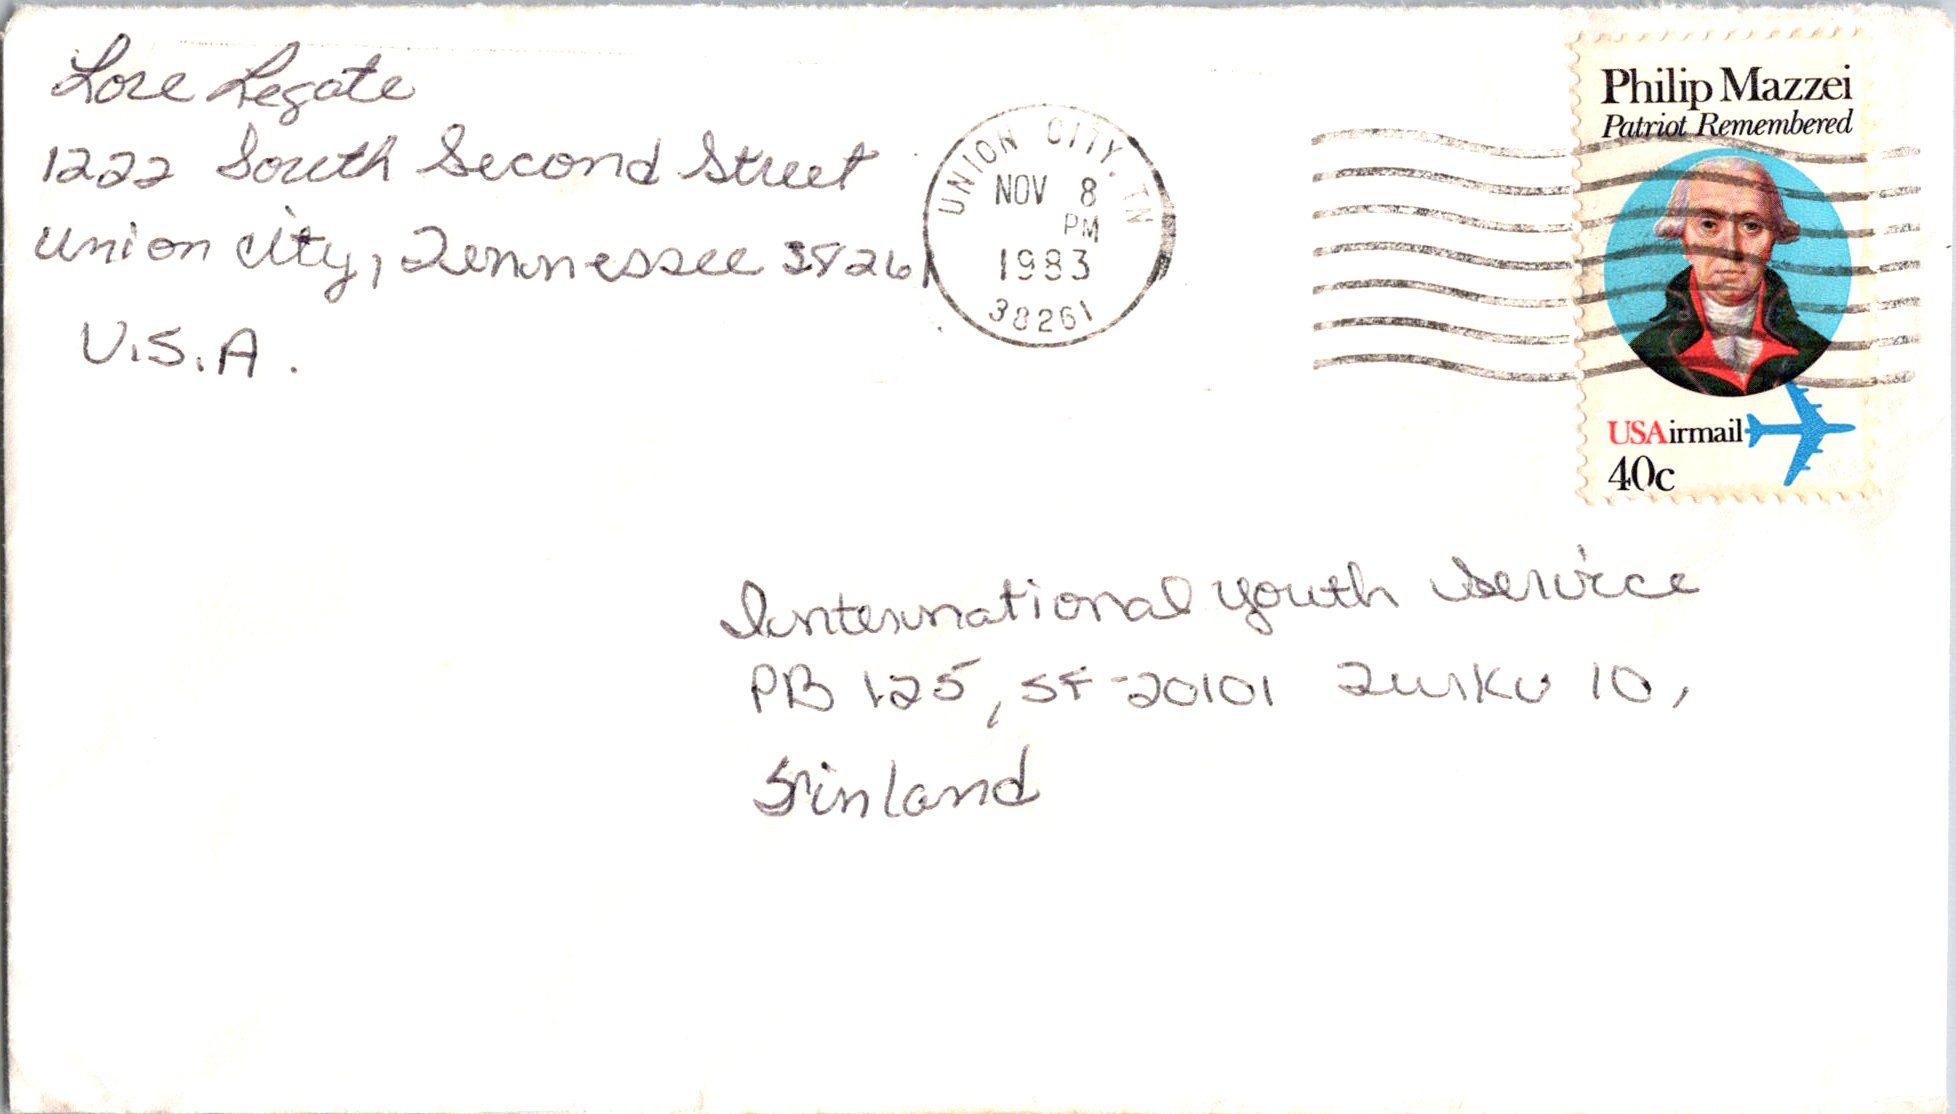 Lore Legate
1222 South Second Street
Union City, Tennessee 38261
U.S.A.
UNION CITY, TN
NOV 8
PM
1983
38261
Philip Mazzei
Patriot Remembered
USAirmail
40c
International Youth Service
PB 125, SF-20101 Turku 10,
Finland